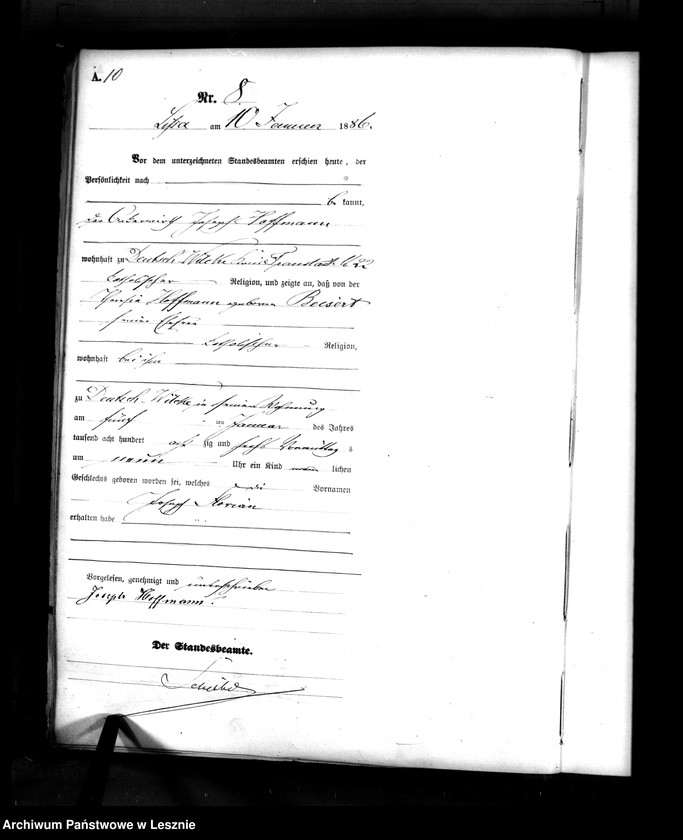 A. 10
Nr. 8.
Lissa am 10 Januar 1886.
Vor dem unterzeichneten Standesbeamten erschien heute, der
Persönlichkeit nach
be kannt,
der Ackerwirth Joseph Hoffmann
wohnhaft zu Deutsch Wilke Kreis Fraustadt No 22
katholischer Religion, und zeigte an, daß von der
Theresia Hoffmann geborene Beesert
seiner Ehefrau
katholischer Religion,
wohnhaft bei ihm
zu Deutsch Wilke in seiner Wohnung
am fünf ten Januar des Jahres
tausend acht hundert acht zig und sechs Vormittag s
um neun Uhr ein Kind männ lichen
Geschlechts geboren worden sei, welches die Vornamen
Joseph Florian
erhalten habe
Vorgelesen, genehmigt und unterschrieben
Joseph Hoffmann.
Der Standesbeamte.
Archiwum Państwowe w Lesznie